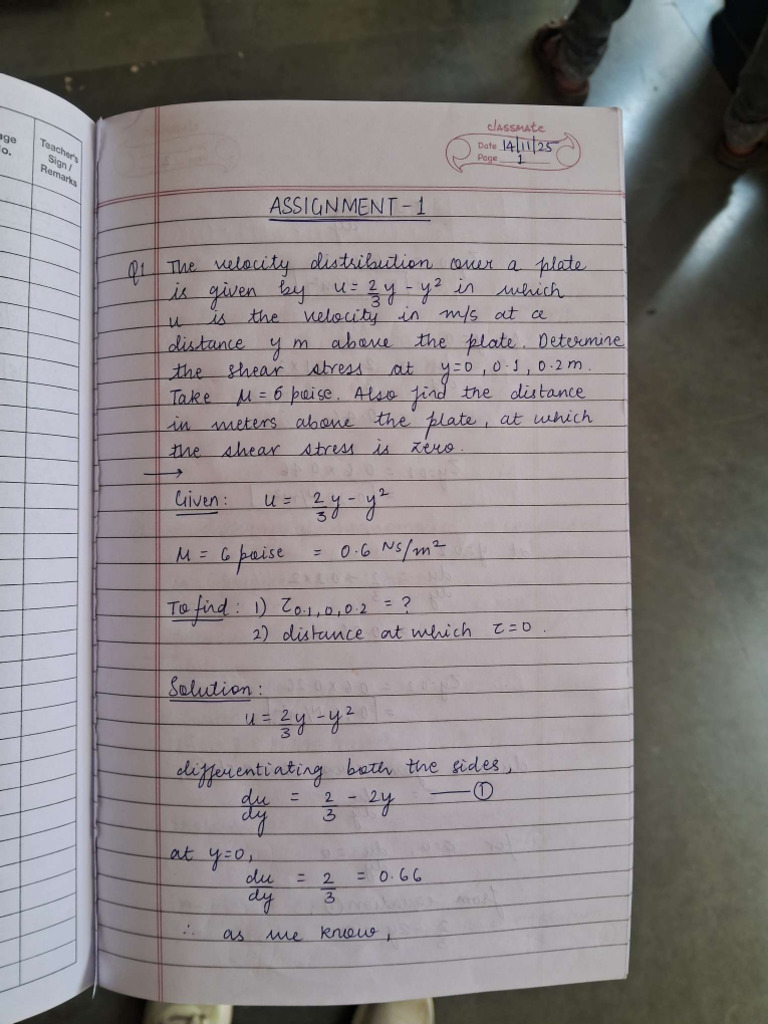 age
No.
Teacher's
Sign /
Remarks
classmate
Date 14/11/25
Page 1
ASSIGNMENT-1
Q1 The velocity distribution over a plate
is given by u = 2/3 y - y² in which
u is the velocity in m/s at a
distance y m above the plate. Determine
the shear stress at y=0, 0.1, 0.2 m.
Take μ = 6 poise. Also find the distance
in meters above the plate, at which
the shear stress is zero.
→
Given: u = 2/3 y - y²
μ = 6 poise = 0.6 NS/m²
To find: 1) τ0.1, 0, 0.2 = ?
2) distance at which τ=0.
Solution:
u = 2/3 y - y²
differentiating both the sides,
du/dy = 2/3 - 2y — ①
at y=0,
du/dy = 2/3 = 0.66
∴ as we know,